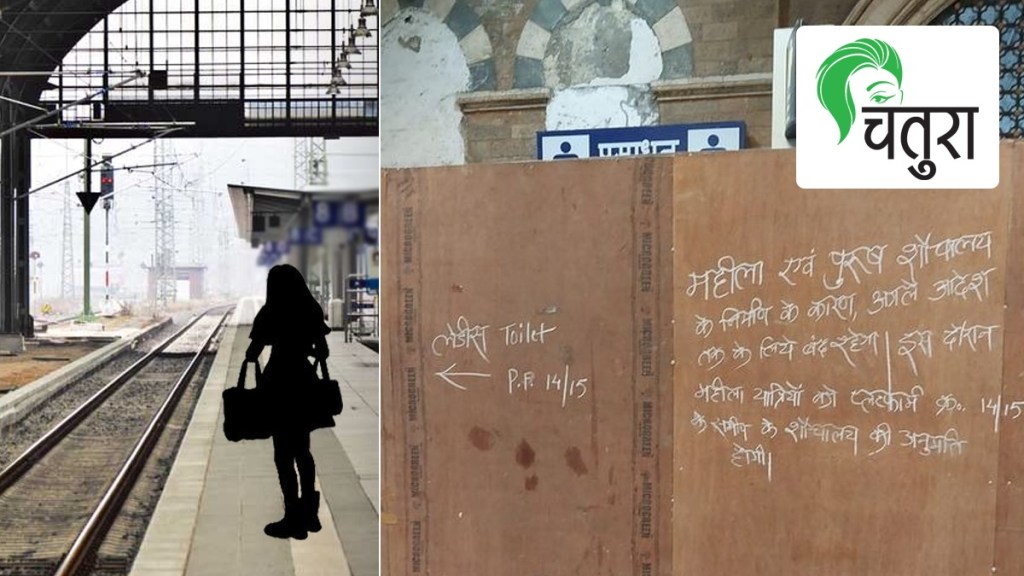 चतुरा
प्रसाधन
MICROGREEN
लेडीस Toilet
← P.F. 14/15
महीला एवं पुरूष शौचालय
के निर्माण के कारण, अगले आदेश
तक के लिये बंद रहेगा। इस दौरान
महीला यात्रियों को प्लॅटफार्म क्र०. 14/15
के समीप के शौचालय की अनुमति
होगी।